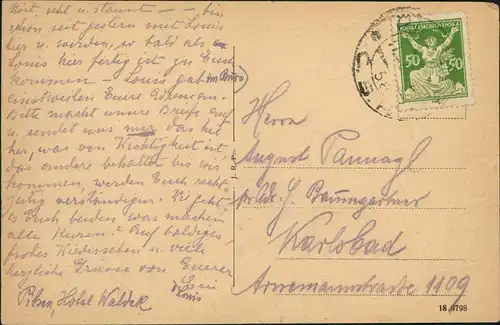 Hört, seht u. staunt - - bin
schon seit gestern mit Louis
hier u. werden, so bald als
Louis hier fertig ist zu Euch
kommen - Louis gab im Büro
einstweilen Euere Adresse an.
Bitte macht unsere Briefe auf
u. sendet uns nur das hie-
her, was von Wichtigkeit ist,
das andere behaltet bis wir
kommen, werden Euch recht-
zeitig verständigen. Wie geht
es Euch beiden, was machen
alle Kuren? Auf baldiges,
frohes Wiedersehen u. viele
herzliche Grüsse von Euerer
Louis
Pilsen, Hotel Waldek
POŠTA ČESKOSLOVENSKÁ
50 50
Herrn
August Pannagl
p. Adr. J. Baumgartner
Karlsbad
Arnemannstrasse 1109
J. R. P.
18 9798